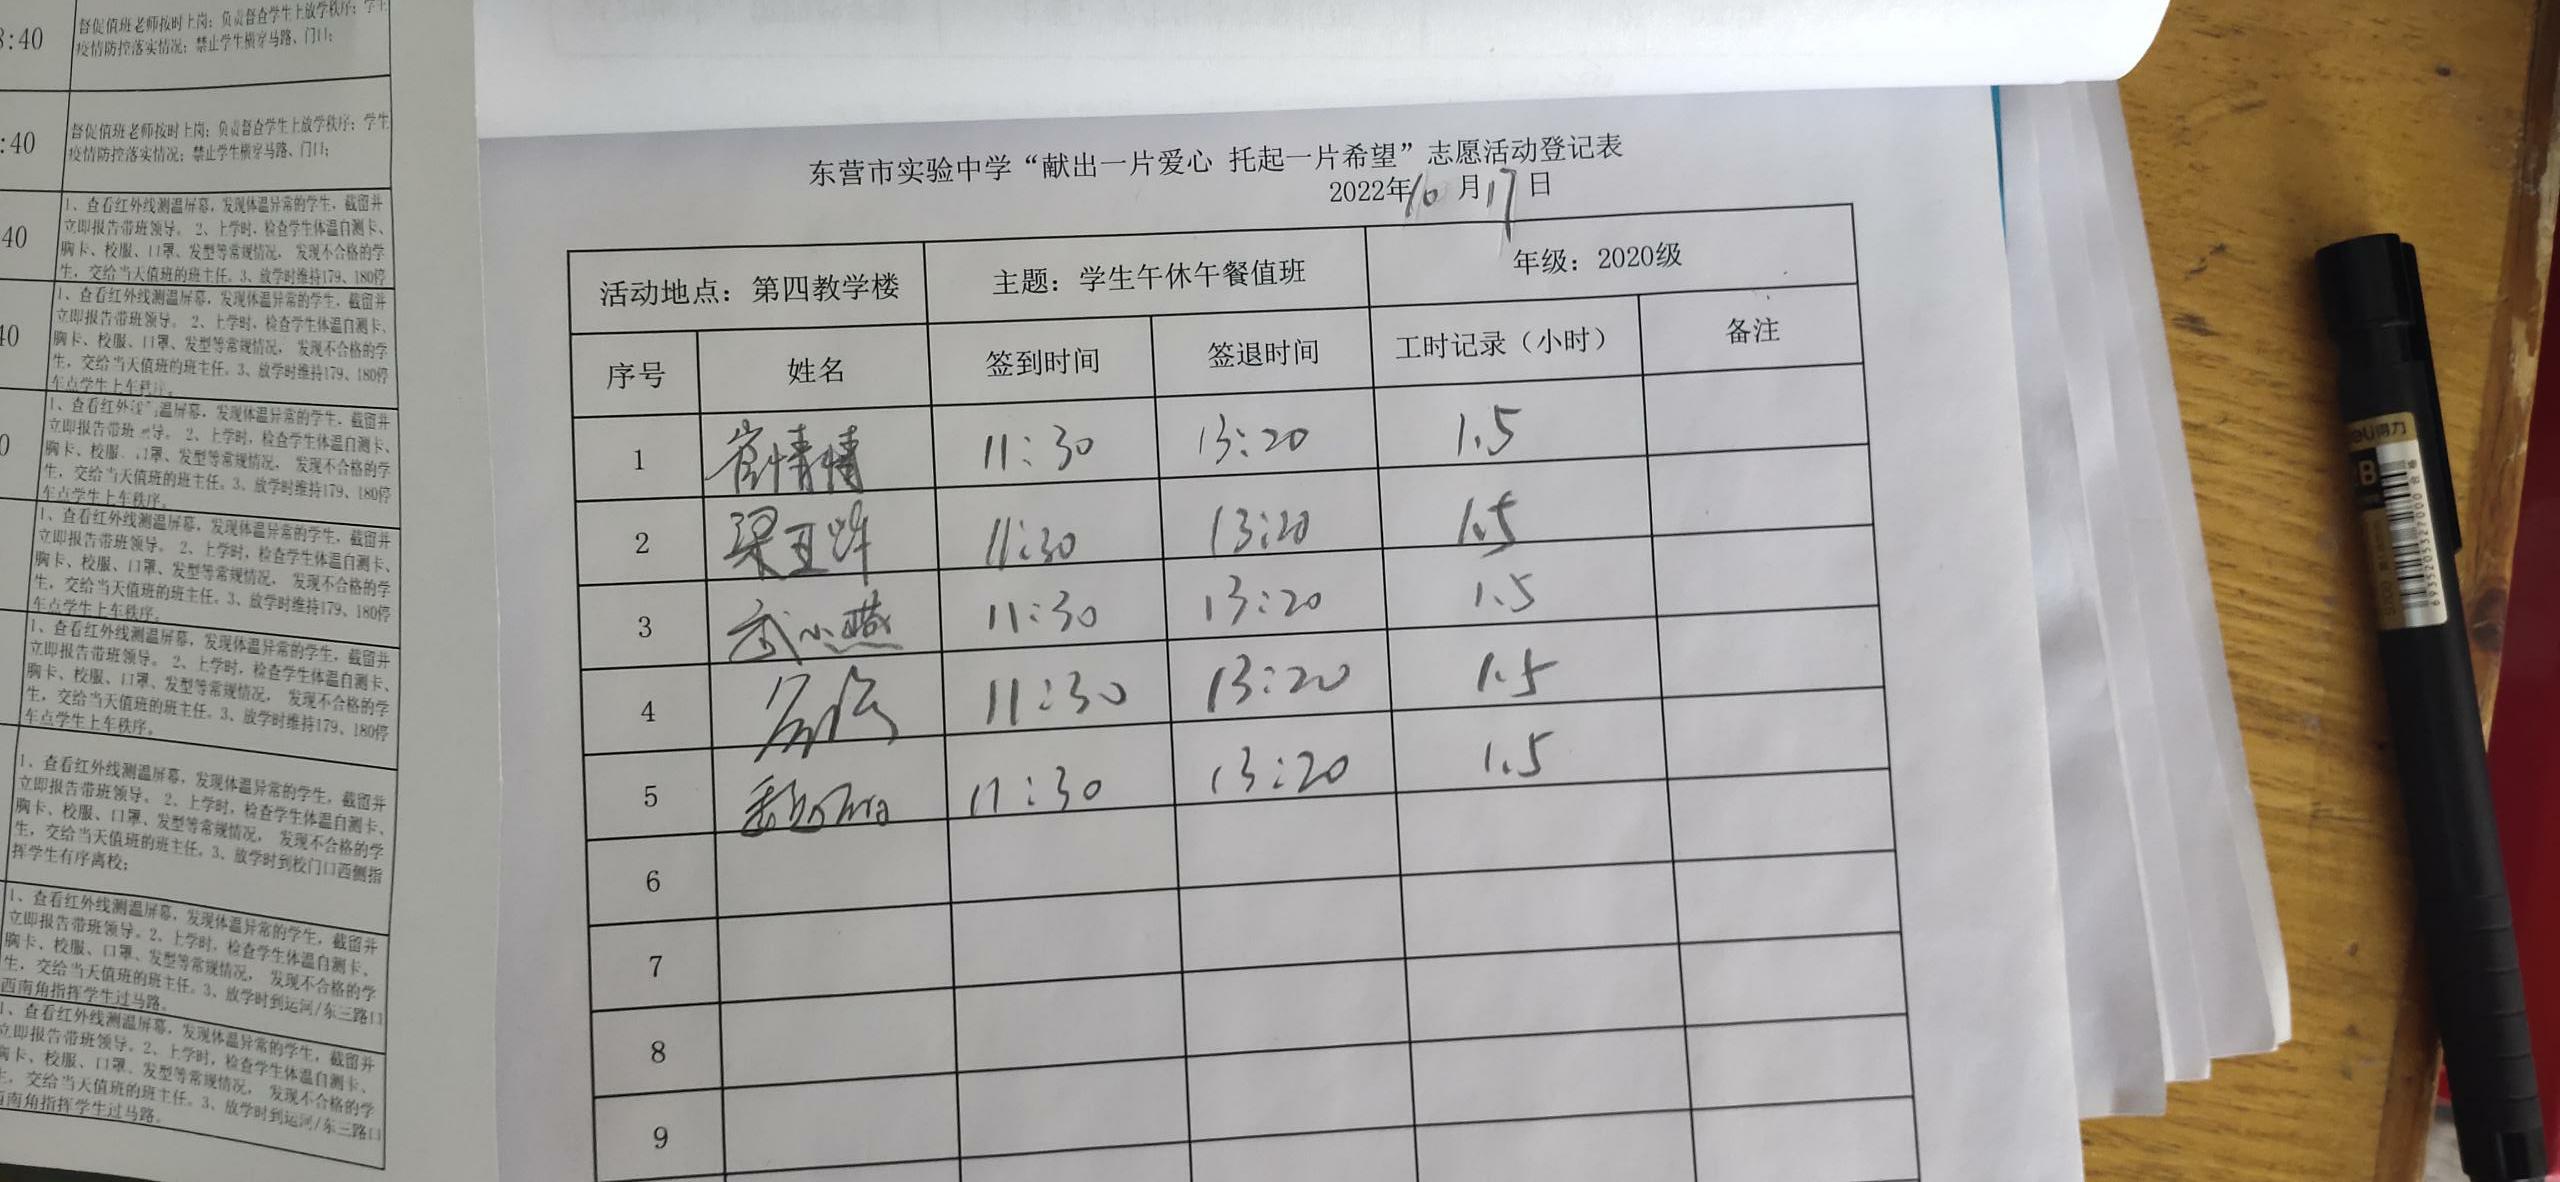 :40
督促值班老师按时上岗；负责督查学生上放学秩序；学生
疫情防控落实情况；禁止学生横穿马路、门口；
:40
督促值班老师按时上岗；负责督查学生上放学秩序；学生
疫情防控落实情况；禁止学生横穿马路、门口；
40
1、查看红外线测温屏幕，发现体温异常的学生，截留并
立即报告带班领导。 2、上学时，检查学生体温自测卡、
胸卡、校服、口罩、发型等常规情况， 发现不合格的学
生，交给当天值班的班主任。3、放学时维持179、180停
40
1、查看红外线测温屏幕，发现体温异常的学生，截留并
立即报告带班领导。 2、上学时，检查学生体温自测卡、
胸卡、校服、口罩、发型等常规情况， 发现不合格的学
生，交给当天值班的班主任。3、放学时维持179、180停
车点学生上车秩序。
0
1、查看红外 温屏幕，发现体温异常的学生，截留并
立即报告带班 导。 2、上学时，检查学生体温自测卡、
胸卡、校服、口罩、发型等常规情况， 发现不合格的学
生，交给当天值班的班主任。3、放学时维持179、180停
车点学生上车秩序。
1、查看红外线测温屏幕，发现体温异常的学生，截留并
立即报告带班领导。 2、上学时，检查学生体温自测卡、
胸卡、校服、口罩、发型等常规情况， 发现不合格的学
生，交给当天值班的班主任。3、放学时维持179、180停
车点学生上车秩序。
1、查看红外线测温屏幕，发现体温异常的学生，截留并
立即报告带班领导。 2、上学时，检查学生体温自测卡、
胸卡、校服、口罩、发型等常规情况， 发现不合格的学
生，交给当天值班的班主任。3、放学时维持179、180停
车点学生上车秩序。
1、查看红外线测温屏幕，发现体温异常的学生，截留并
立即报告带班领导。 2、上学时，检查学生体温自测卡、
胸卡、校服、口罩、发型等常规情况， 发现不合格的学
生，交给当天值班的班主任。3、放学时到校门口西侧指
挥学生有序离校；
1、查看红外线测温屏幕，发现体温异常的学生，截留并
立即报告带班领导。2、上学时，检查学生体温自测卡、
胸卡、校服、口罩、发型等常规情况， 发现不合格的学
生，交给当天值班的班主任。3、放学时到运河/东三路口
西南角指挥学生过马路。
1、查看红外线测温屏幕，发现体温异常的学生，截留并
立即报告带班领导。2、上学时，检查学生体温自测卡、
胸卡、校服、口罩、发型等常规情况， 发现不合格的学
生，交给当天值班的班主任。3、放学时到运河/东三路口
西南角指挥学生过马路。
东营市实验中学“献出一片爱心 托起一片希望”志愿活动登记表
2022年10月17日
活动地点：第四教学楼 主题：学生午休午餐值班 年级：2020级
序号 姓名 签到时间 签退时间 工时记录（小时） 备注
1 崔情情 11:30 13:20 1.5
2 梁 11:30 13:20 1.5
3 武小燕 11:30 13:20 1.5
4 11:30 13:20 1.5
5 11:30 13:20 1.5
6
7
8
9
deli得力